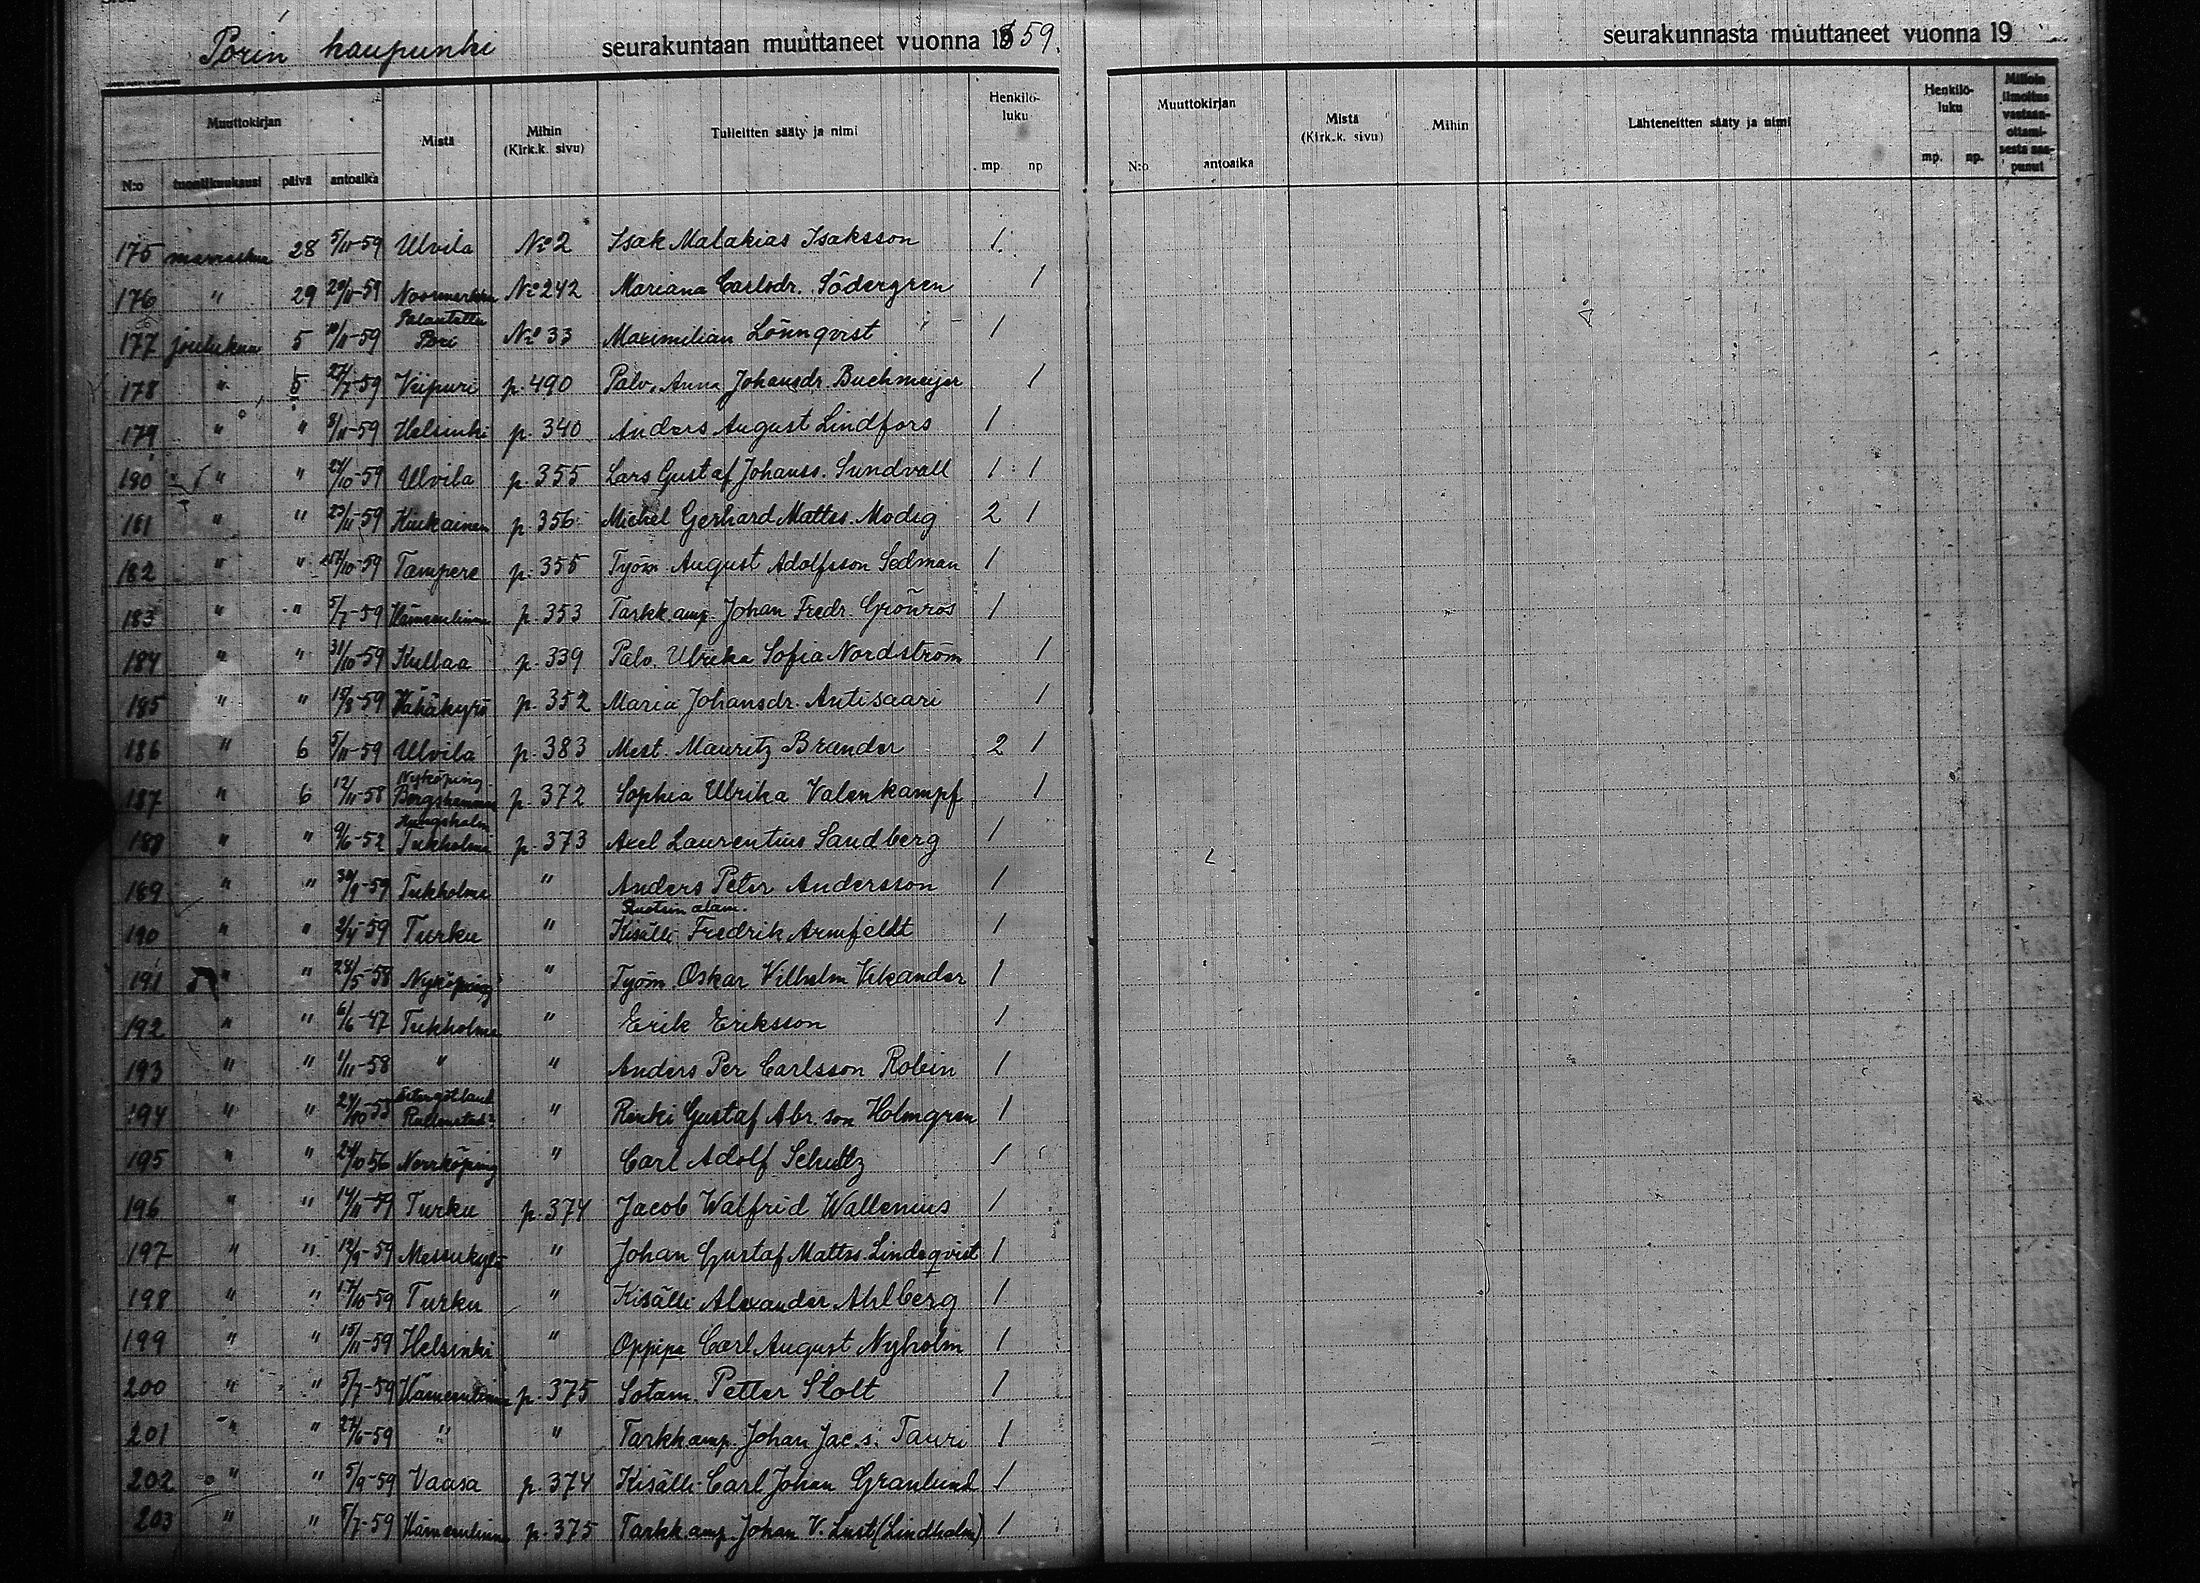 Porin kaupunki seurakuntaan muuttaneet vuonna 1859.
Muuttokirjan Mistä Mihin (Kirk.k. sivu) Tulleitten sääty ja nimi Henkilö-luku
N:o tuontikuukausi päivä antoaika mp. np
175 marraskuu 28 5/11-59 Ulvila No 2 Isak Malakias Isaksson 1
176 " 29 20/11-59 Noormarkku No 242 Mariana Carlsdr. Södergren 1
Palautettu
177 joulukuu 5 10/11-59 Pori No 33 Maximilian Lönnqvist 1
178 " 5 27/7-59 Viipuri p. 490 Palv. Anna Johansdr. Buchmeijer 1
179 " " 8/11-59 Helsinki p. 340 Anders August Lindfors 1
180 " " 27/10-59 Ulvila p. 355 Lars Gustaf Johanss. Sundvall 1 1
181 " " 23/11-59 Kiukainen p. 356 Michel Gerhard Mattss. Modig 2 1
182 " " Tampere p. 355 Työm. August Adolfsson Sedman 1
183 " " 5/7-59 Hämeenlinna p. 353 Tarkk.amp. Johan Fredr. Grönros 1
184 " " 31/10-59 Kullaa p. 339 Palv. Ulrika Sofia Nordström 1
185 " " 18/8-59 Vähäkyrö p. 352 Maria Johansdr. Antisaari 1
186 " 6 5/11-59 Ulvila p. 383 Mest. Mauritz Brander 2 1
Nyköping
187 " 6 12/11-58 Bergshammar p. 372 Sophia Ulrika Valenkampf 1
Kungsholm
188 " " 9/6-52 Tukholma p. 373 Axel Laurentius Sandberg 1
189 " " 30/9-59 Tukholma " Anders Peter Andersson 1
Ruotsin alam.
190 " " Turku " Kisälli Fredrik Armfeldt 1
191 " " 28/5-58 Nyköping " Työm. Oskar Vilhelm Vikander 1
192 " " 6/6-47 Tukholma " Erik Eriksson 1
193 " " 1/11-58 " " Anders Per Carlsson Robin 1
194 " " " Renki Gustaf Abr.son Holmgren 1
195 " " 24/10 56 Norrköping " Carl Adolf Schultz 1
196 " " 14/11-59 Turku p. 374 Jacob Walfrid Wallenius 1
197 " " 12/9-59 Messukylä " Johan Gustaf Mattss. Lindeqvist 1
198 " " 17/10-59 Turku " Kisälli Alexander Ahlberg 1
199 " " 15/11-59 Helsinki " Oppipa Carl August Nyholm 1
200 " " 5/7-59 Hämeenlinna p. 375 Sotam. Petter Stolt 1
201 " " 27/6-59 " " Tarkkamp. Johan Jac.s. Tauri 1
202 " " 5/9-59 Vaasa p. 374 Kisälli Carl Johan Granlund 1
203 " " 5/7-59 Hämeenlinna p. 375 Tarkk.amp. Johan V. Lust (Lindholm) 1
seurakunnasta muuttaneet vuonna 19
Muuttokirjan Mistä (Kirk.k. sivu) Mihin Lähteneitten sääty ja nimi Henkilö-luku Milloin ilmoitus vastaan-ottami-sesta saa-punut
N:o antoaika mp. np.